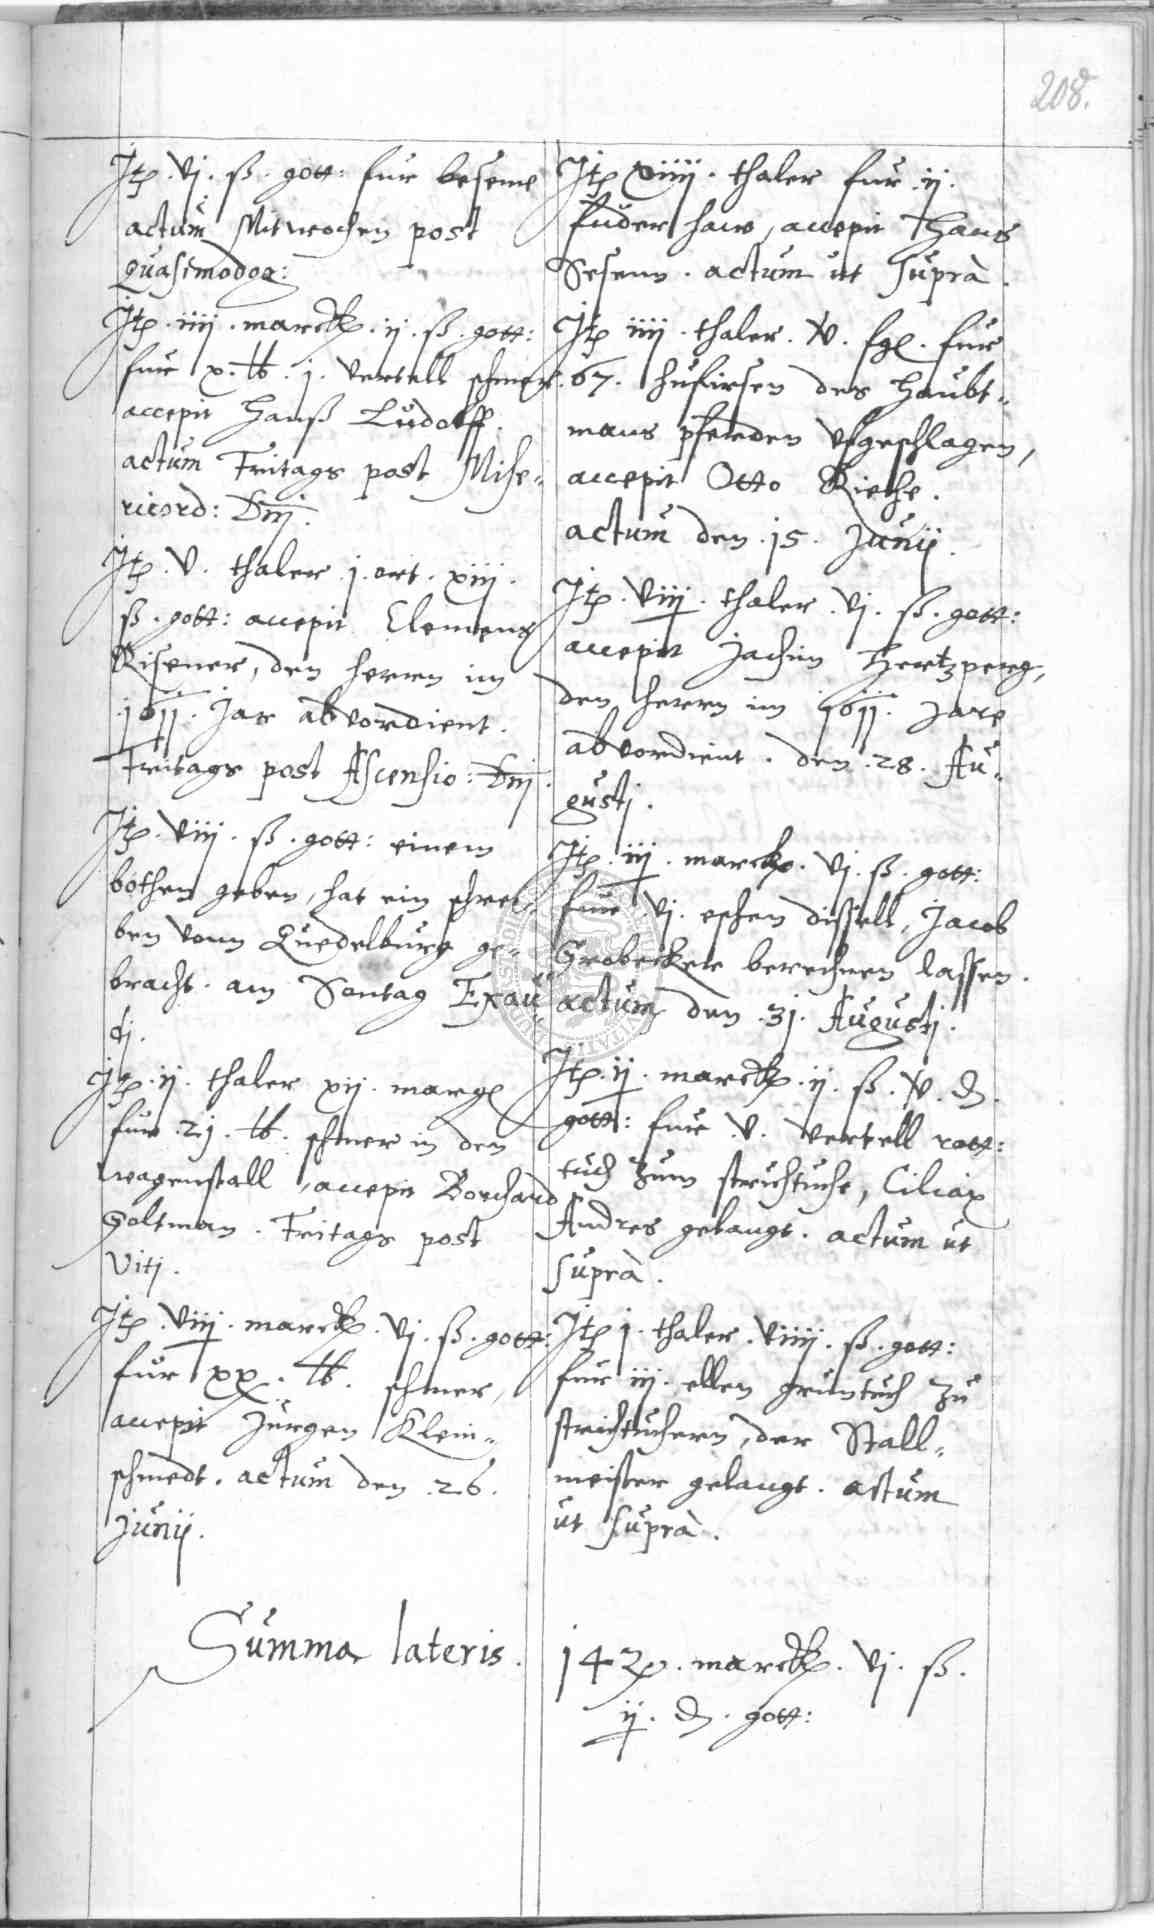 208.
Jtz. vj. ß. gott: fur beseme
actum Mitwochen post
quasimodog:
Jtz. iiij. marck. ij. ß. gott:
fur x. tb. j. vertell schmer.
accepit Hanß Ludolff.
actum Fritags post Mise-
ricord: Dnj.
Jtz. v. thaler. j. ort. xiij.
ß. gott: accepit Clemens
Risener, den herrn im
1611. Jar abvordient.
Fritags post Ascensio: Dnj.
Jtz. viij. ß. gott: einem
bothen geben, hat ein schrei-
ben vonn Quedelburg ge-
bracht. am Sontag Exau
dj.
Jtz. ij. thaler xij. margl
fur 21. tb. schmer in den
wagenstall, accepit Borchard
Soltman. Fritags post
Vitj.
Jtz. viij. marck. vj. ß. gott:
fur xx. tb. schmer,
accepit Jurgen Klein-
schmedt. actum den 26.
Junij.
Jtz xiiij. thaler fur ij.
fuder haw, accepit Hans
Sesenn. actum ut supra.
Jtz iiij. thaler. v. sgl. fur
67. hufirsen des Haubt-
mans pferden ufgeschlagen,
accepit Otto Rieche.
actum den 15. Junij.
Jtz. viij. thaler. vj. ß. gott:
accepit Jachim Hertzperg,
den herrn im 1611. Jare
abvordient. den 28. Au-
gustj.
Jtz. iij. marck. vj. ß. gott:
fur vj. eschen disstell, Jacob
Grobecker berechnen lassen.
actum den 31. Augustj.
Jtz. ij. marck. ij. ß. v. d.
gott: fur v. vertell rott:
tuch zum strichtuche, Ciliax
Andres gelangt. actum ut
supra.
Jtz j. thaler. viiij. ß. gott:
fur iij. ellen gruntuch zu
strichtuchern, der Stall-
meister gelangt. actum
ut supra.
Summa lateris. 142. marck. vj. ß.
ij. d. gott: